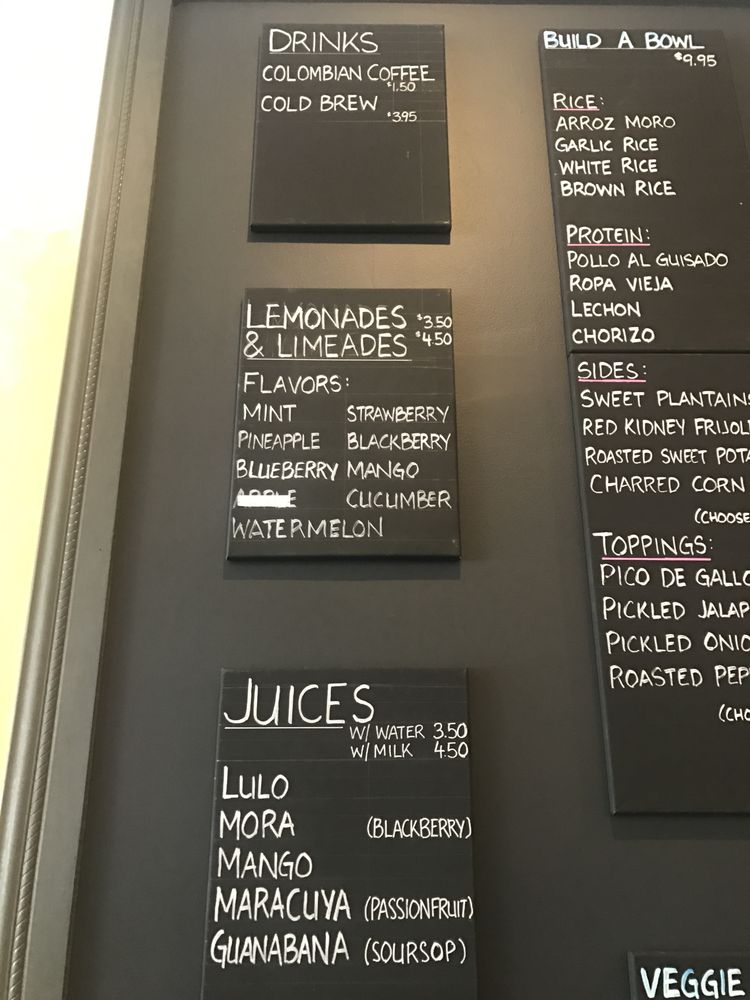 DRINKS
COLOMBIAN COFFEE
$1.50
COLD BREW
$3.95
LEMONADES $3.50
& LIMEADES $4.50
FLAVORS:
MINT STRAWBERRY
PINEAPPLE BLACKBERRY
BLUEBERRY MANGO
CUCUMBER
WATERMELON
JUICES
W/ WATER 3.50
W/ MILK 4.50
LULO
MORA (BLACKBERRY)
MANGO
MARACUYA (PASSIONFRUIT)
GUANABANA (SOURSOP)
BUILD A BOWL
$9.95
RICE:
ARROZ MORO
GARLIC RICE
WHITE RICE
BROWN RICE
PROTEIN:
POLLO AL GUISADO
ROPA VIEJA
LECHON
CHORIZO
SIDES:
SWEET PLANTAINS
RED KIDNEY
ROASTED SWEET
CHARRED CORN
(CHOOSE
TOPPINGS:
PICO DE
PICKLED
PICKLED
ROASTED
VEGGIE